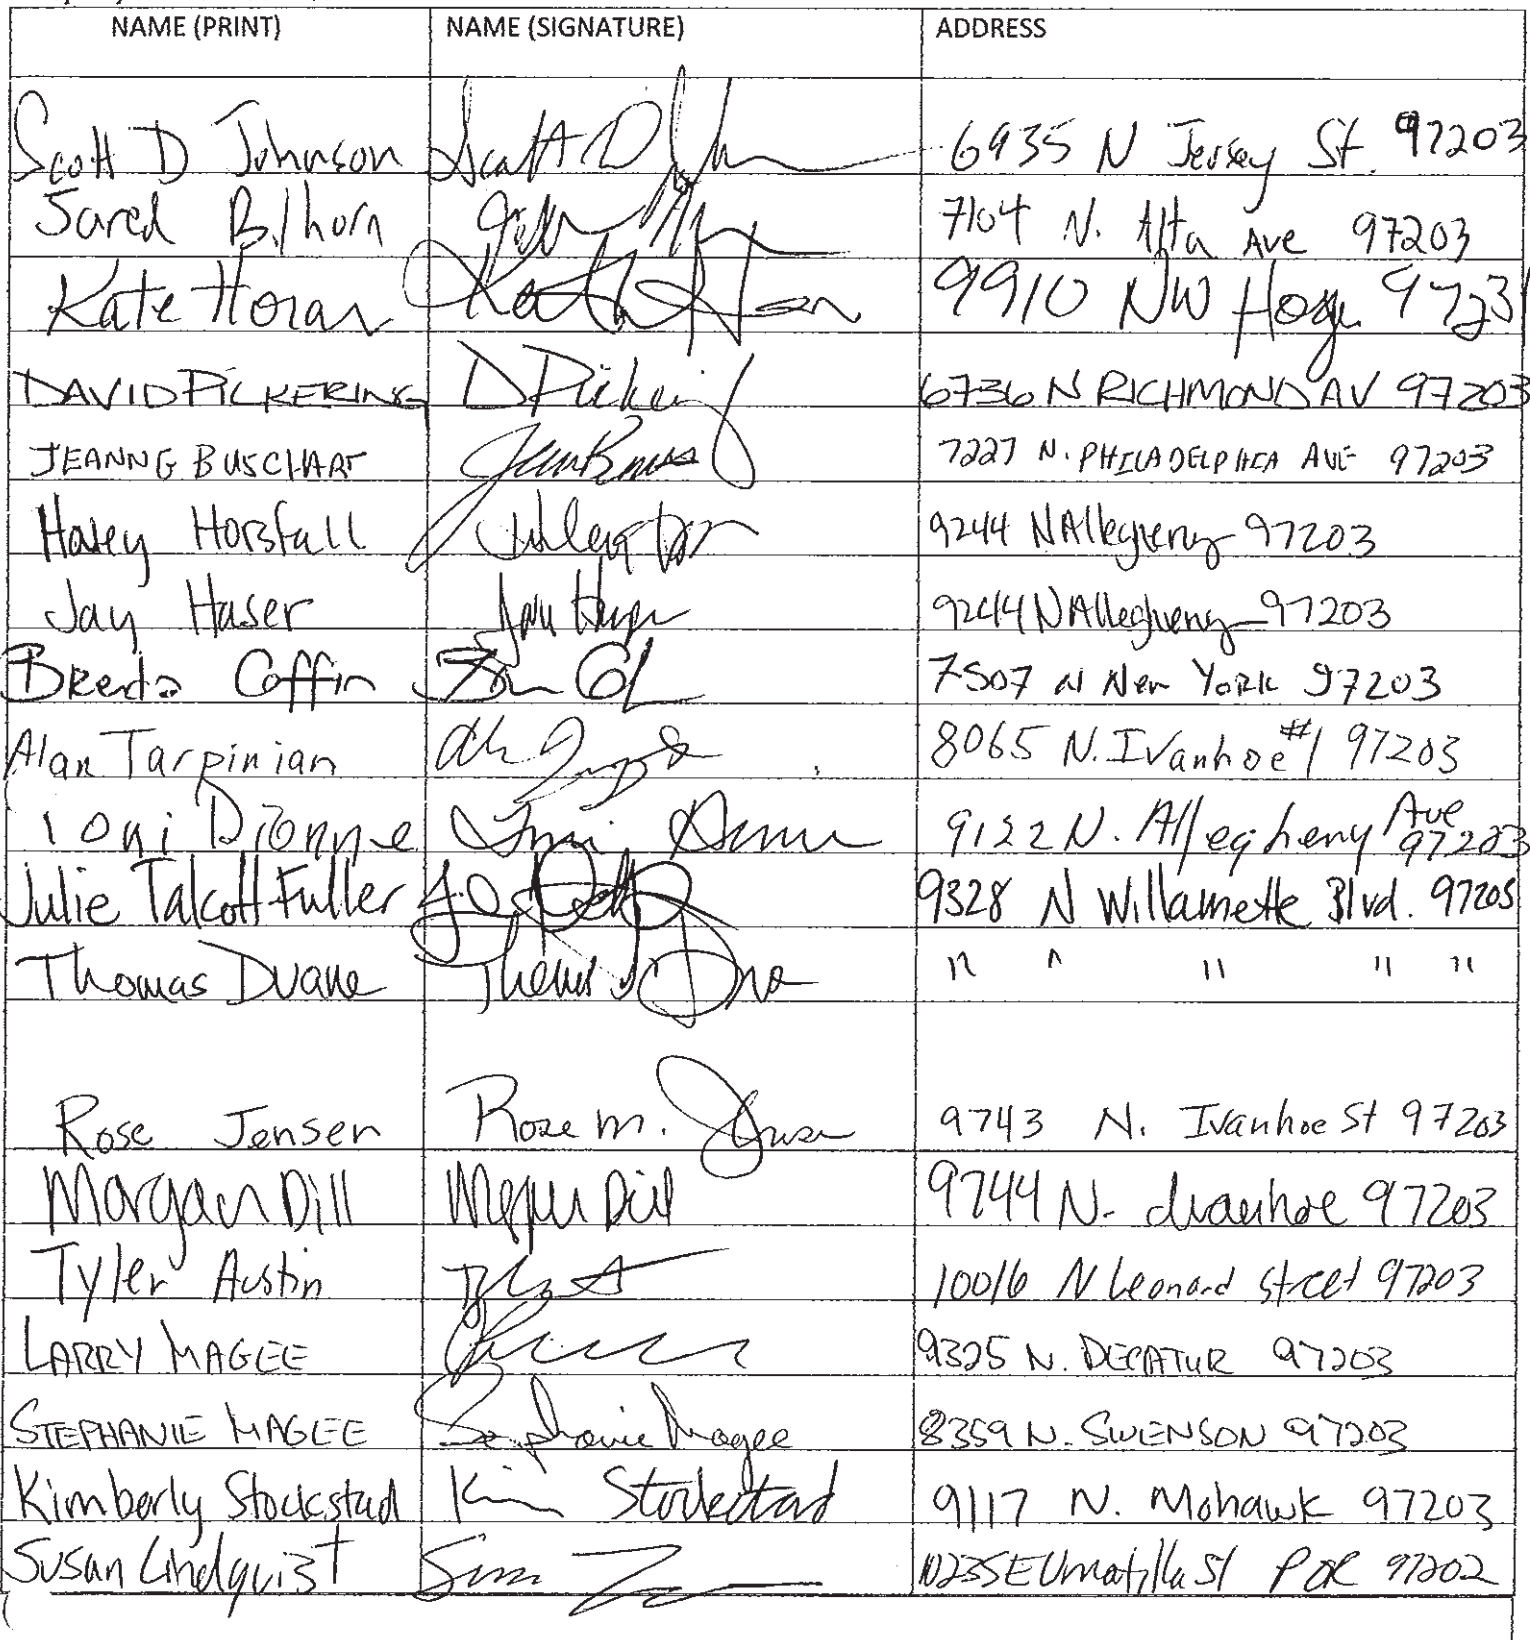 NAME (PRINT) NAME (SIGNATURE) ADDRESS
Scott D Johnson Scott D 6935 N Jersey St. 97203
Jared Bilhorn 7104 N. Alta Ave 97203
Kate Horan 9910 NW 97231
DAVID PICKERING D Pickering 6736 N RICHMOND AV 97203
JEANNE BUSCHART 7227 N. PHILADELPHIA AVE 97203
Haley Horsfall 9244 N Allegheny 97203
Jay Haser 9244 N Allegheny 97203
Brenda Coffin 7507 N New York 97203
Alan Tarpinian 8065 N. Ivanhoe #1 97203
Toni Dionne Toni Dionne 9122 N. Allegheny Ave 97203
Julie Talcott Fuller 9328 N Willamette Blvd. 97203
Thomas Duane " " " " "
Rose Jensen Rose M. Jensen 9743 N. Ivanhoe St 97203
Morgan Dill Morgan Dill 9744 N. Ivanhoe 97203
Tyler Austin 10016 N Leonard Street 97203
LARRY MAGEE 9325 N. DECATUR 97203
STEPHANIE MAGEE Stephanie Magee 8359 N. SWENSON 97203
Kimberly Stockstad Kim Stockstad 9117 N. Mohawk 97203
Susan Lindquist Umatilla St 97202